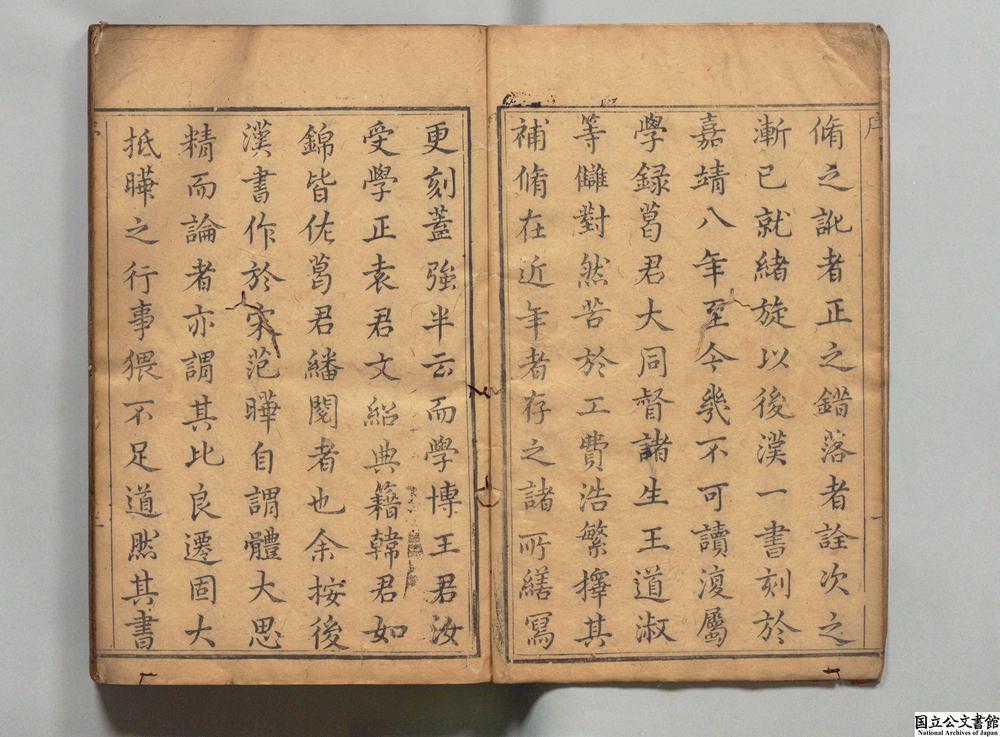 序
脩之訛者正之錯落者詮次之
漸已就緒旋以後漢一書刻於
嘉靖八年至今幾不可讀復屬
學録葛君大同督諸生王道淑
等讎對然苦於工費浩繁擇其
補脩在近年者存之諸所繕寫
更刻蓋強半云而學博王君汝
受學正袁君文紹典籍韓君如
錦皆佐葛君繙閱者也余按後
漢書作於宋范曄自謂體大思
精而論者亦謂其比良遷固大
抵曄之行事猥不足道然其書
国立公文書館
National Archives of Japan